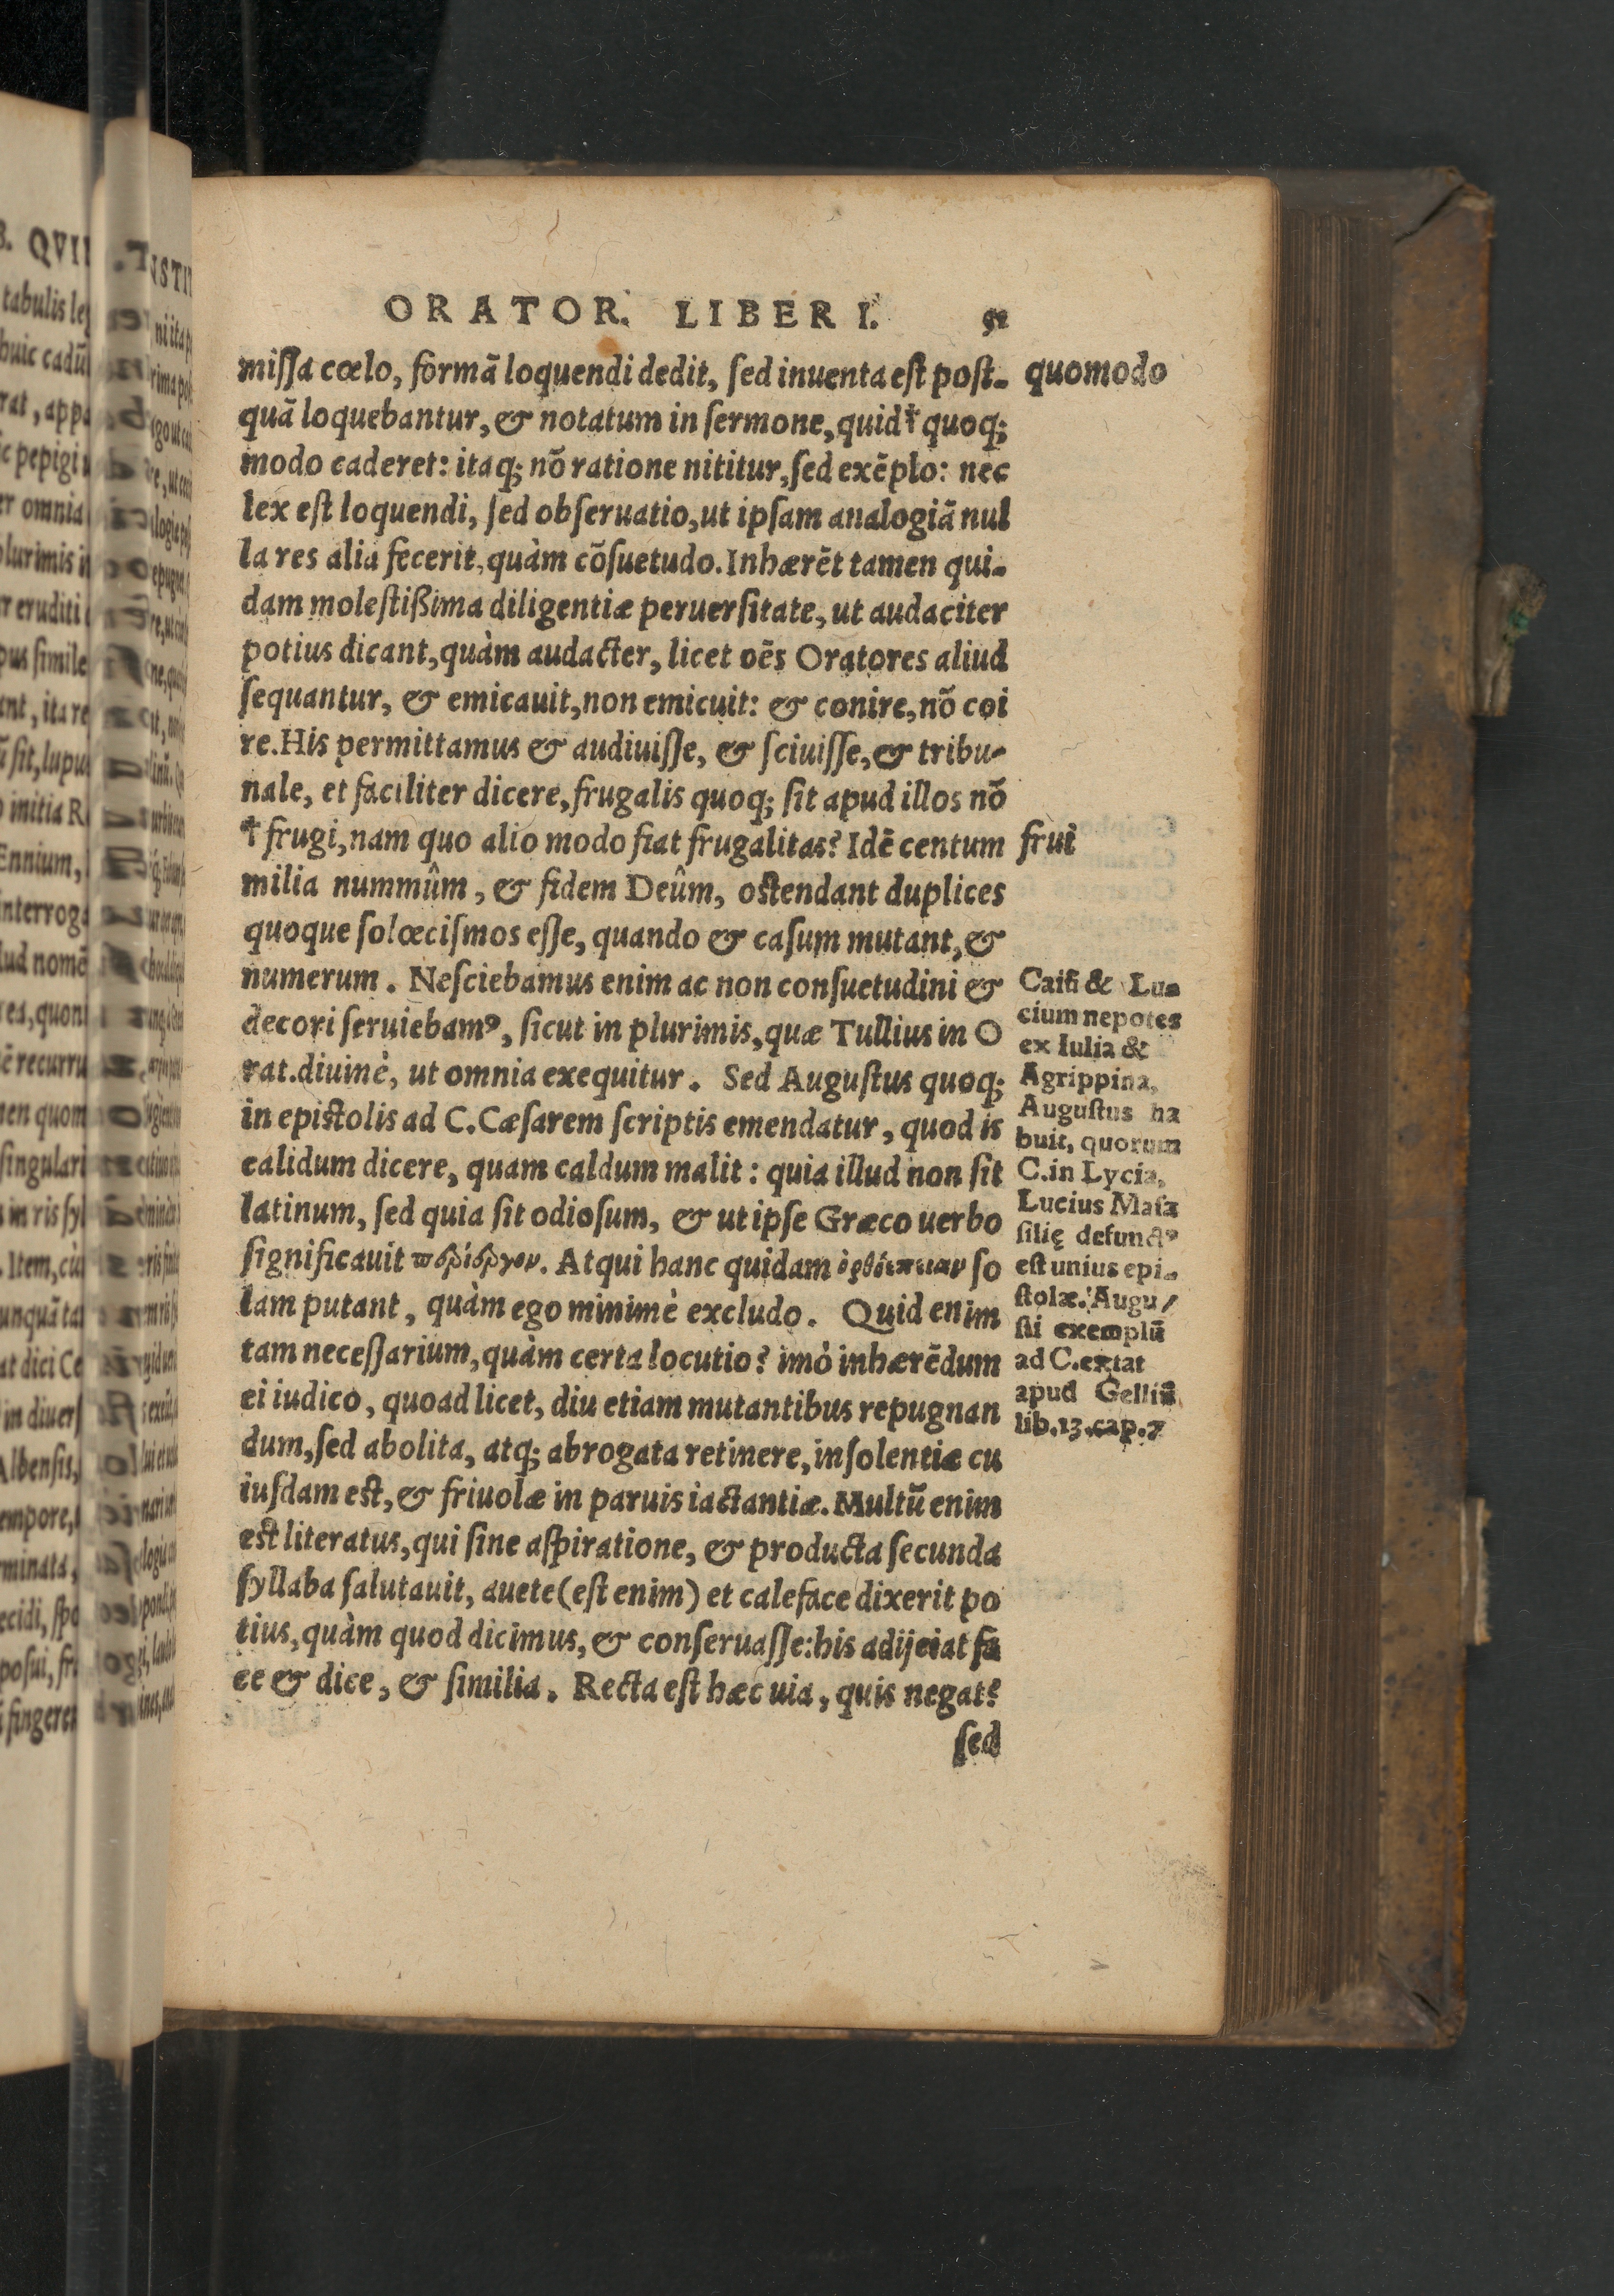 ORATOR. LIBER I.
miſſa cœlo, formā loquendi dedit, ſed inuenta eſt poſt-
quā loquebantur, & notatum in ſermone, quid† quoq;
modo caderet: itaq; nō ratione nititur, ſed exēplo: nec
lex eſt loquendi, ſed obſeruatio, ut ipſam analogiā nul
la res alia fecerit, quàm cōſuetudo. Inhærēt tamen qui-
dam moleſtißima diligentiæ peruerſitate, ut audaciter
potius dicant, quàm audacter, licet oēs Oratores aliud
ſequantur, & emicauit, non emicuit: & conire, nō coi
re. His permittamus & audiuiſſe, & ſciuiſſe, & tribu-
nale, et faciliter dicere, frugalis quoq; ſit apud illos nō
† frugi, nam quo alio modo fiat frugalitas? Idē centum
milia nummûm, & fidem Deûm, oſtendant duplices
quoque ſolœciſmos eſſe, quando & caſum mutant, &
numerum. Neſciebamus enim ac non conſuetudini &
decori ſeruiebamꝰ, ſicut in plurimis, quæ Tullius in O
rat. diuinè, ut omnia exequitur. Sed Auguſtus quoq;
in epiſtolis ad C. Cæſarem ſcriptis emendatur, quod is
calidum dicere, quam caldum malit: quia illud non ſit
latinum, ſed quia ſit odioſum, & ut ipſe Græco uerbo
ſignificauit περίεργον. Atqui hanc quidam ὀρθόεπειαν ſo
lam putant, quàm ego minimè excludo. Quid enim
tam neceſſarium, quàm certa locutio? imò inhærēdum
ei iudico, quoad licet, diu etiam mutantibus repugnan
dum, ſed abolita, atq; abrogata retinere, inſolentiæ cu
iuſdam eſt, & friuolæ in paruis iactantiæ. Multū enim
eſt literatus, qui ſine aſpiratione, & producta ſecunda
ſyllaba ſalutauit, auete (eſt enim) et caleface dixerit po
tius, quàm quod dicimus, & conſeruaſſe: his adijciat fa
ce & dice, & ſimilia. Recta eſt hæc uia, quis negat?
ſed
quomodo
frui
Caiū & Lu-
cium nepotes
ex Iulia &
Agrippina,
Auguſtus ha
buit, quorum
C. in Lycia,
Lucius Maſſa
ſilię defunctꝰ
eſt unius epi-
ſtolæ. Augu/
ſti exemplū
ad C. extat
apud Gelliū
lib. 13. cap. 7